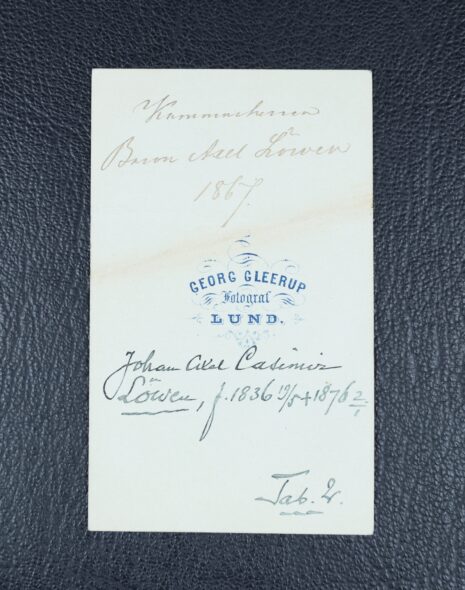 Kammarherren
Baron Axel Löwen
1867.
GEORG GLEERUP
Fotograf
LUND.
Johan Axel Casimir
Löwen, f. 1836 19/5 + 1876 2/1
Tab. 2.